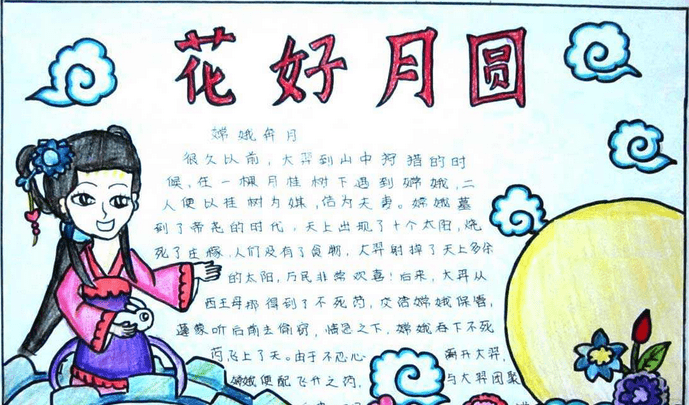 花好月圆
嫦娥奔月
很久以前，大羿到山中狩猎的时
候，在一棵月桂树下遇到嫦娥，二
人便以桂树为媒，结为夫妻。嫦娥
到了帝尧的时代，天上出现了十个太阳，烧
死了庄稼，人们没有了食物，大羿射掉了天上多余
的太阳，万民非常欢喜！后来，大羿从
西王母那得到了不死药，交给嫦娥保管，
逢蒙听后前去偷窃，情急之下，嫦娥吞下不死
药飞上了天。由于不忍心 离开大羿，
嫦娥便配飞升之药， 与大羿团聚